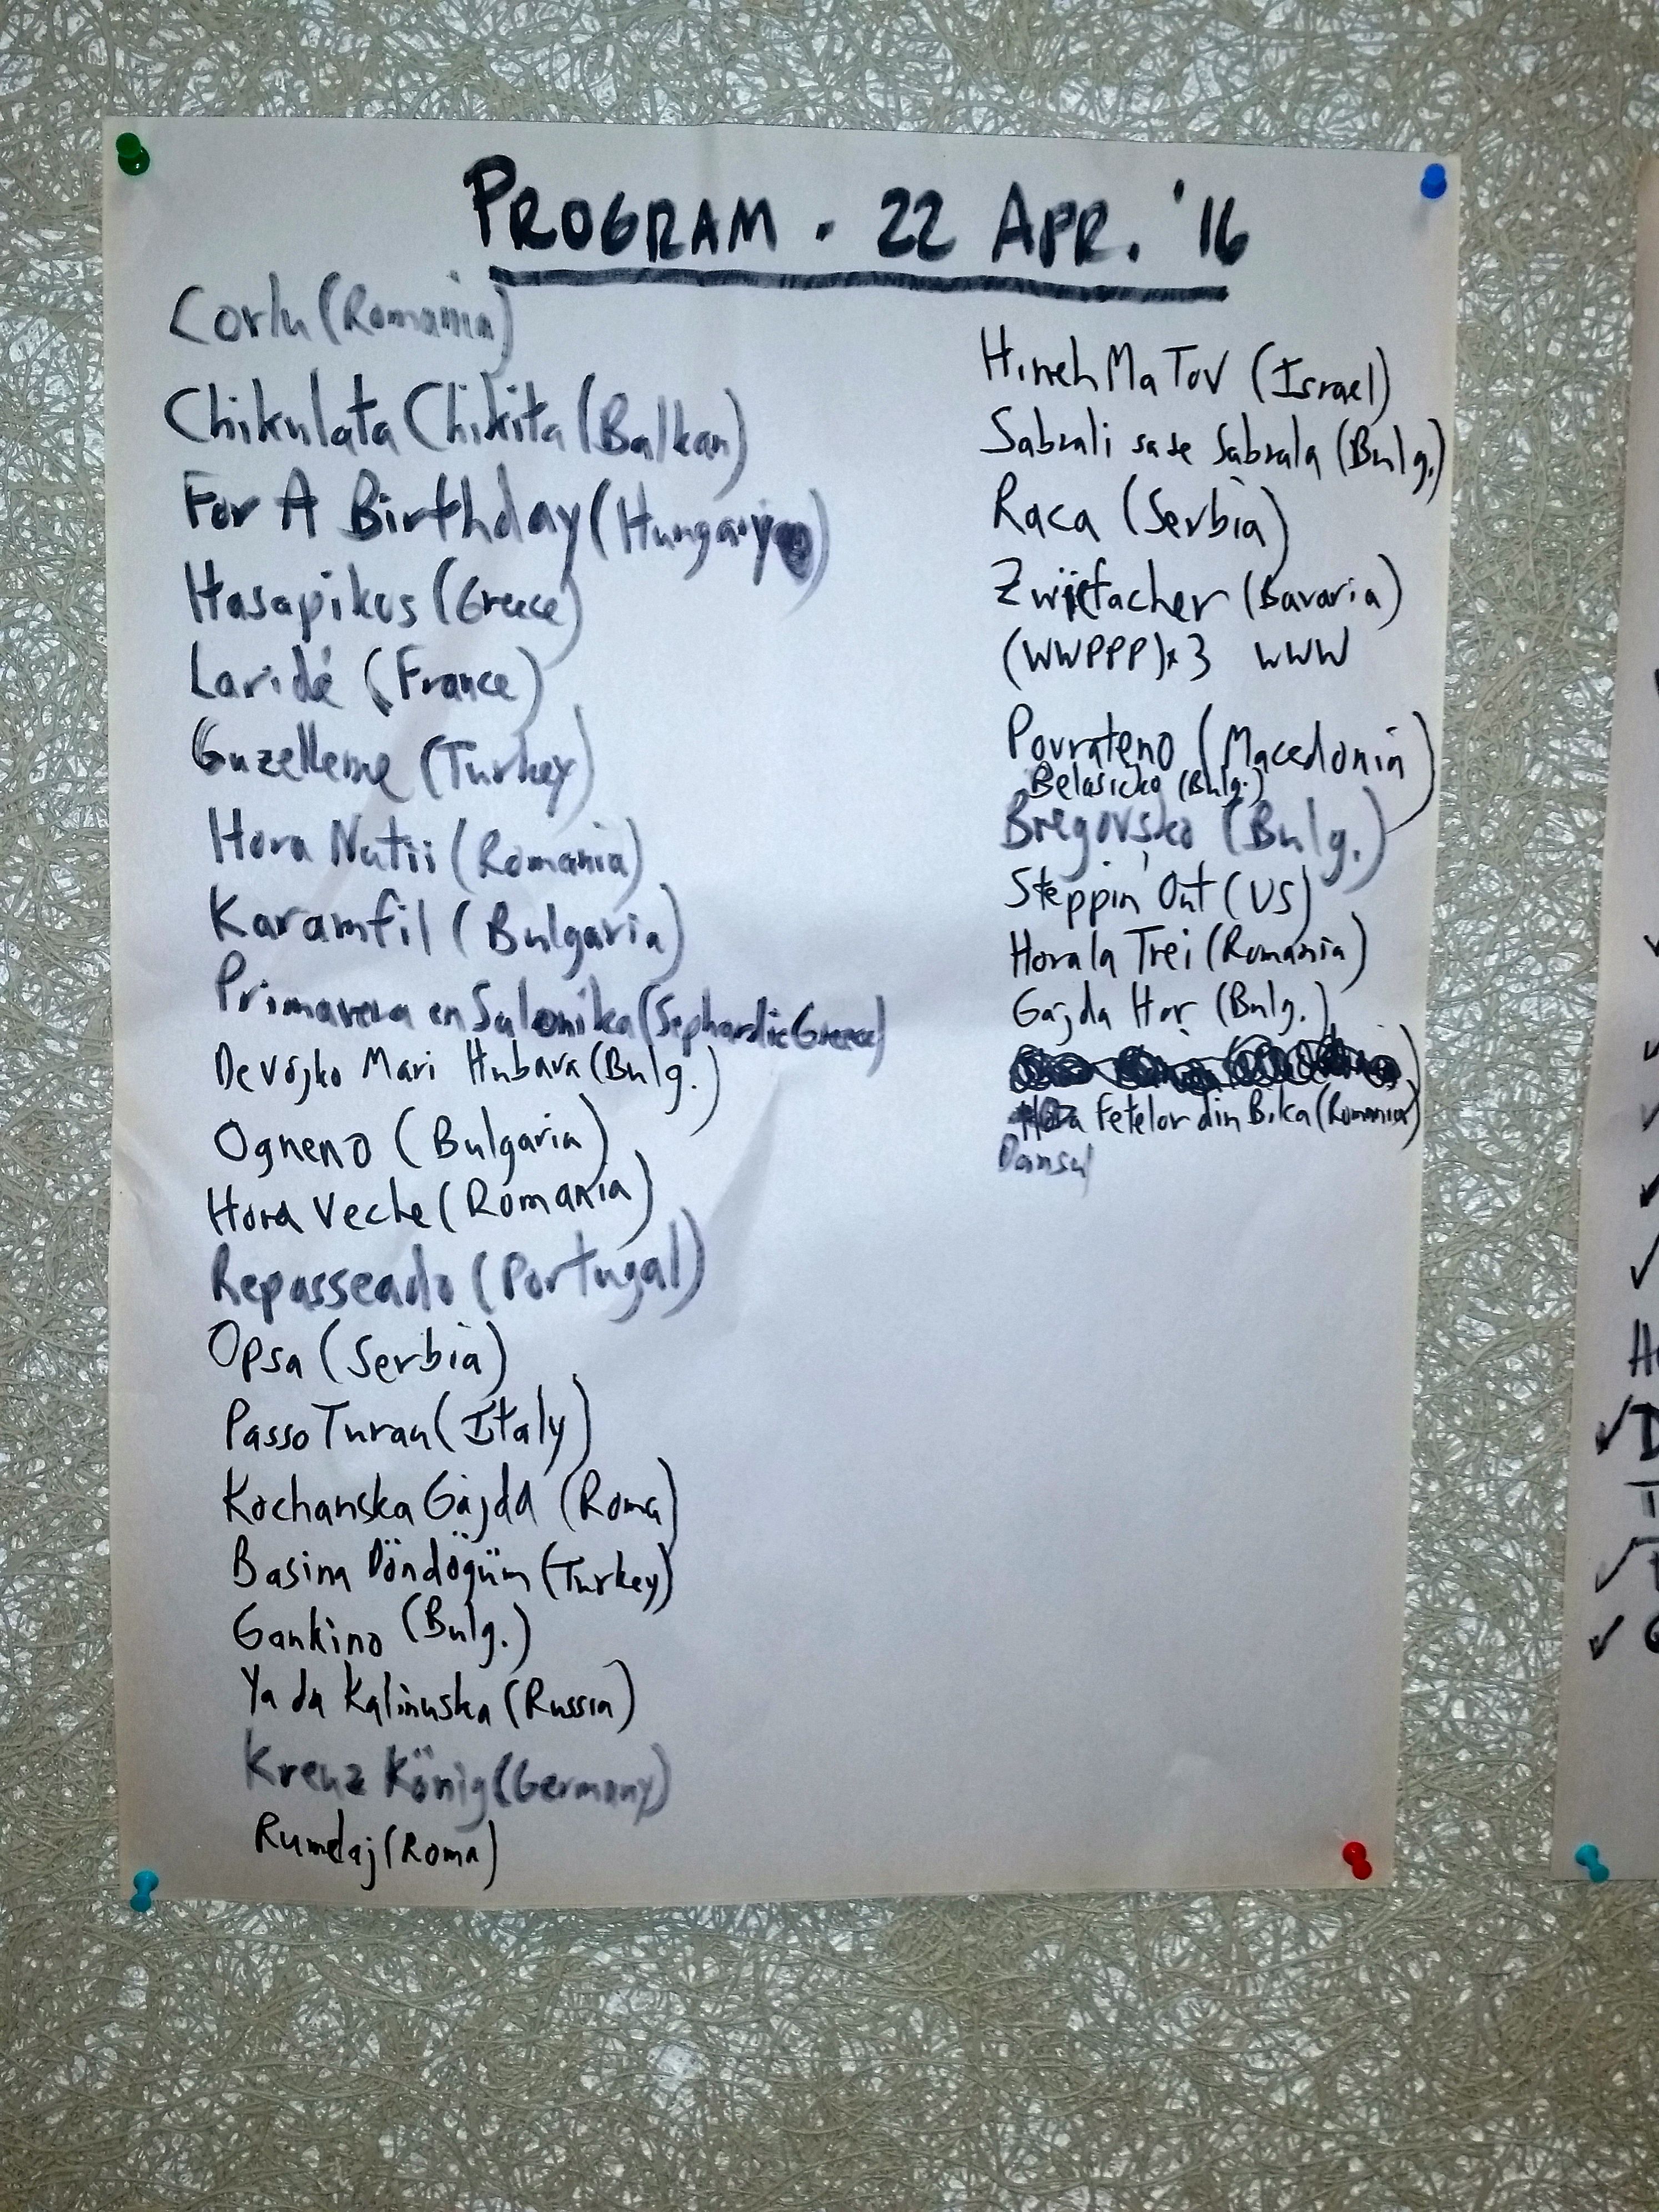 PROGRAM . 22 APR. '16
Corlu (Romania)
Chikulata Chikita (Balkan)
For A Birthday (Hungary)
Hasapikos (Greece)
Laridé (France)
Guzelleme (Turkey)
Hora Nutii (Romania)
Karamfil (Bulgaria)
Primavera en Salonika (Sephardic Greece)
Devojko Mari Hubava (Bulg.)
Ogneno (Bulgaria)
Hora Veche (Romania)
Repasseado (Portugal)
Opsa (Serbia)
Passo Turan (Italy)
Kochanska Gajda (Roma)
Basina Döndögüm (Turkey)
Gankino (Bulg.)
Ya da Kalinuska (Russia)
Kreuz König (Germany)
Rumelaj (Roma)
Hineh Ma Tov (Israel)
Sabrali sa se Sabrala (Bulg.)
Raca (Serbia)
Zwiefacher (Bavaria)
(WWPPP)x3 WWW
Povrateno (Macedonia)
Belasicko (Bulg.)
Bregovsko (Bulg.)
Steppin' Out (US)
Hora la Trei (Romania)
Gajda Hor (Bulg.)
Fetelor din Bika (Romania)
Dansul